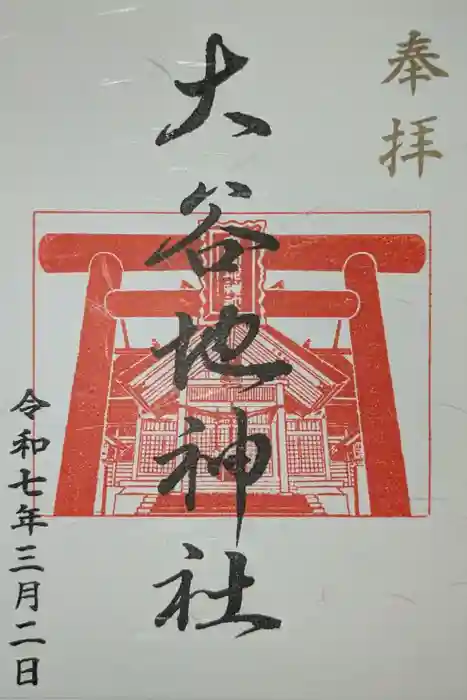 奉拝
大谷地神社
令和七年三月二日